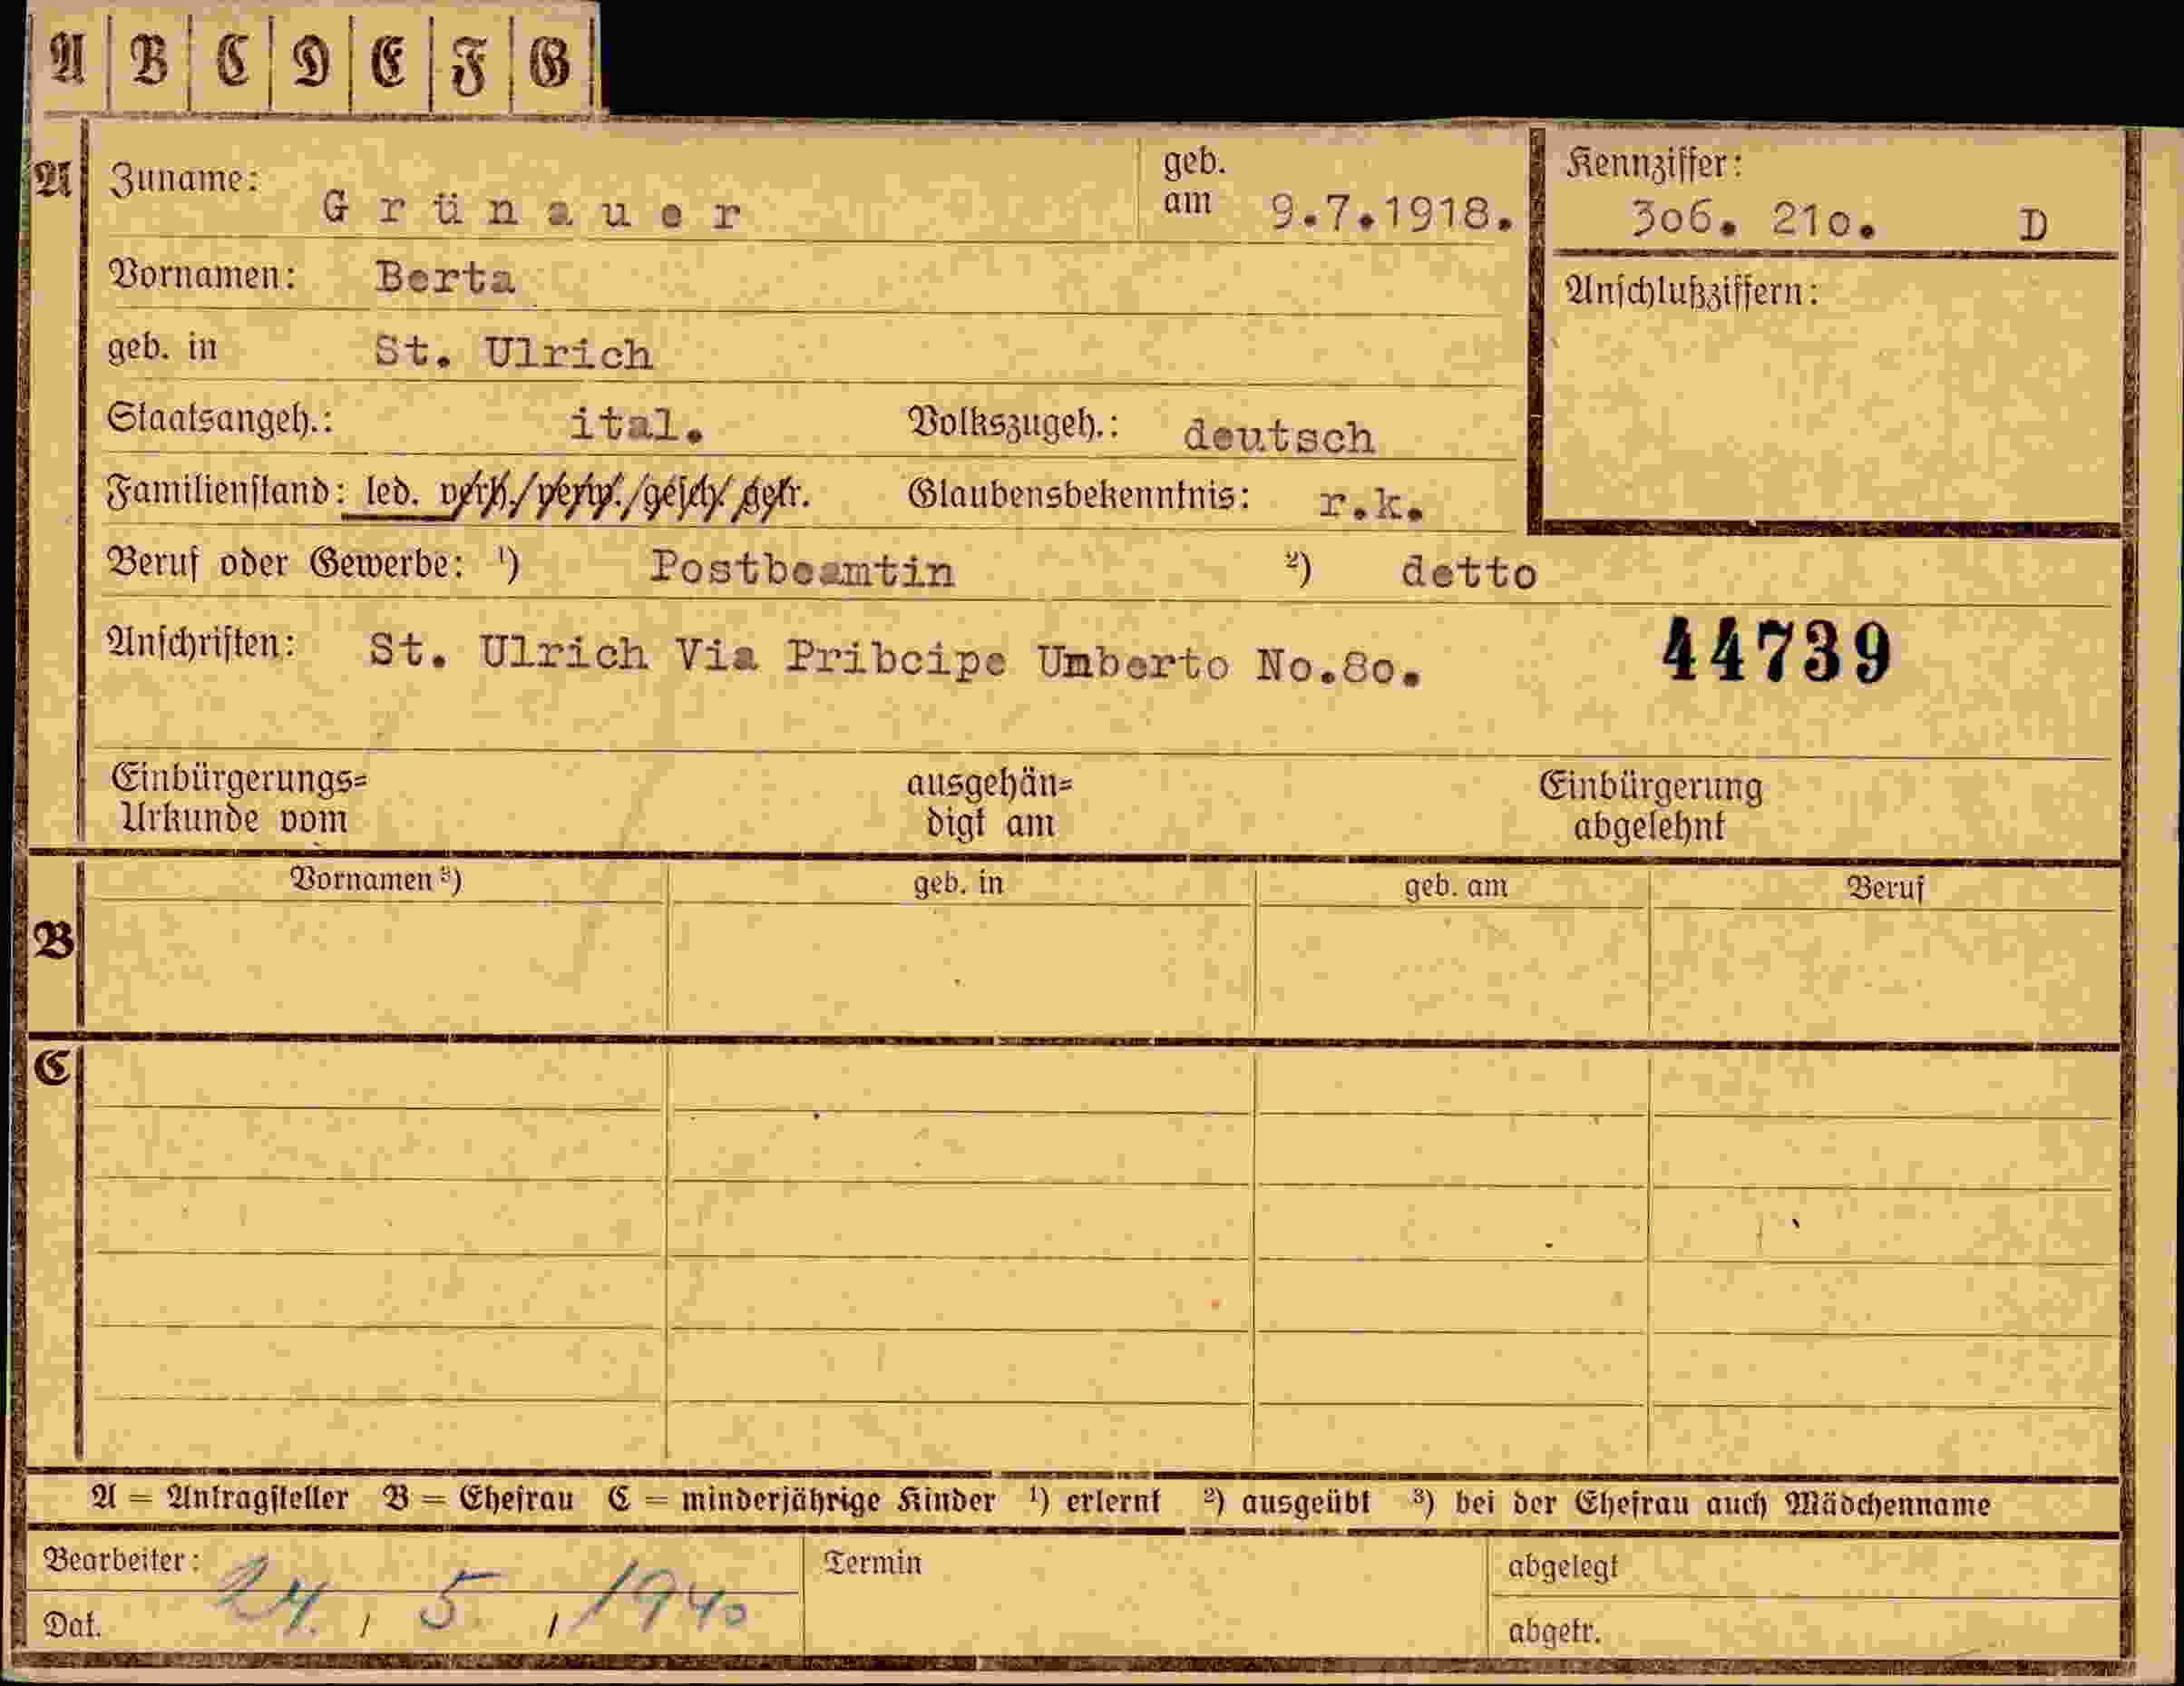 A B C D E F G
A Zuname: Grünauer geb. am 9.7.1918. Kennziffer: 306. 210. D
Vornamen: Berta
geb. in St. Ulrich Anschlußziffern:
Staatsangeh.: ital. Volkszugeh.: deutsch
Familienstand: led. verh./verw./gesch./getr. Glaubensbekenntnis: r.k.
Beruf oder Gewerbe: ¹) Postbeamtin ²) detto
Anschriften: St. Ulrich Via Pribcipe Umberto No.80. 44739
Einbürgerungs= ausgehän= Einbürgerung
Urkunde vom digt am abgelehnt
Vornamen ³) geb. in geb. am Beruf
B
C
A = Antragsteller B = Ehefrau C = minderjährige Kinder ¹) erlernt ²) ausgeübt ³) bei der Ehefrau auch Mädchenname
Bearbeiter: Termin abgelegt
Dat. 24. / 5. / 1940 abgetr.